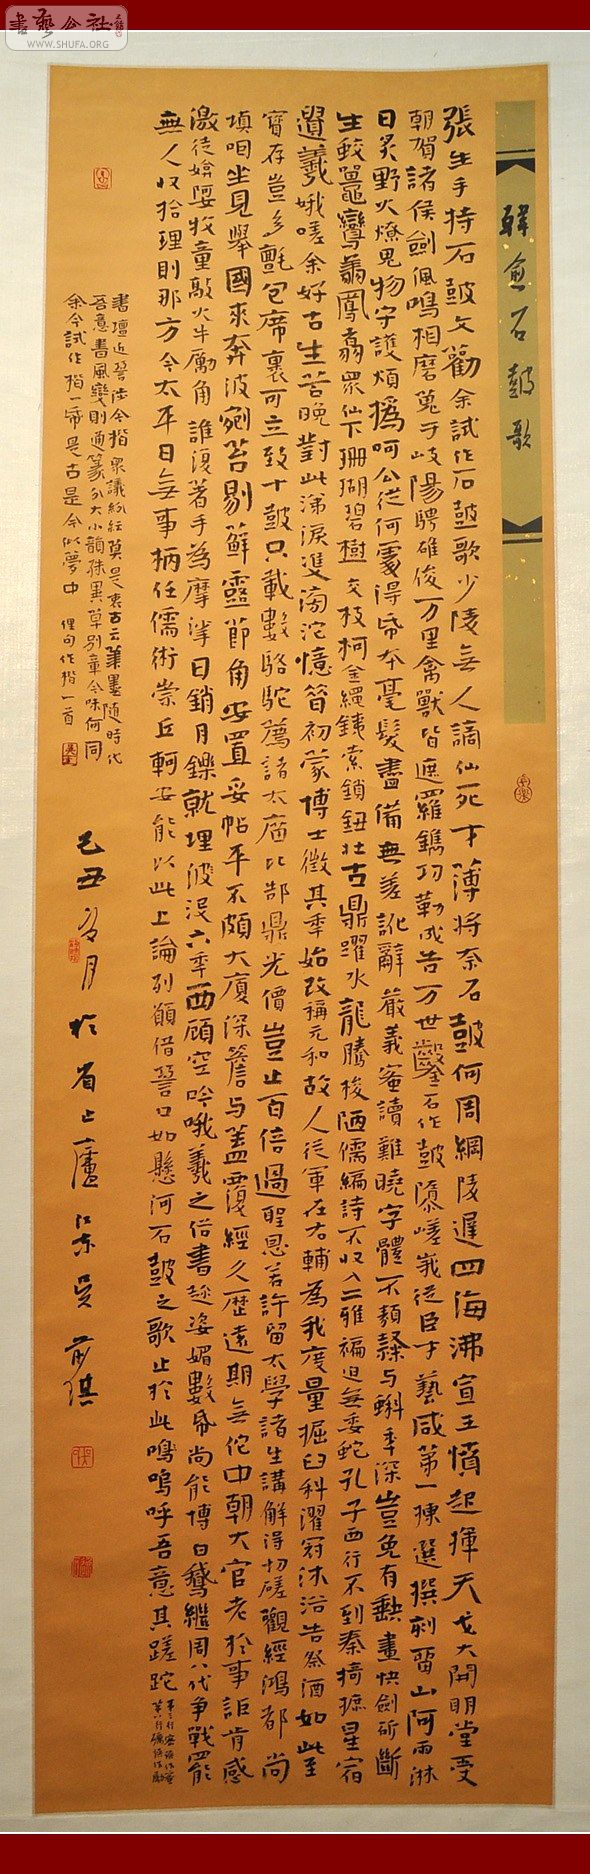 書藝公社
WWW.SHUFA.ORG
韓愈石鼓歌
張生手持石鼓文勸余試作石鼓歌少陵無人謫仙死才薄將奈石鼓何周綱陵遲四海沸宣王憤起揮天戈大開明堂受
朝賀諸侯劍佩鳴相磨蒐于岐陽騁雄俊万里禽獸皆遮羅鐫功勒成告万世鑿石作鼓隳嵯峨從臣才藝咸第一揀選撰刻留山阿雨淋
日炙野火燎鬼物守護煩撝呵公從何處得帋本毫髮盡備無差訛辭嚴義蜜讀難曉字體不類隸与蝌年深豈免有缺畫快劍斫斷
生蛟鼉鸞翥鳳翥眾仙下珊瑚碧樹交枝柯金繩鐵索鎖鈕壮古鼎躍水龍騰梭陋儒編詩不收入二雅褊迫無委蛇孔子西行不到秦掎摭星宿
遺羲娥嗟余好古生苦晚對此涕淚雙滂沱憶昔初蒙博士徵其年始改稱元和故人從軍在右輔為我度量掘臼科濯冠沐浴告祭酒如此至
寳存豈多氈包席裹可立致十鼓只載數駱駝薦諸太廟比郜鼎光價豈止百倍過聖恩若許留太學諸生講解得切磋觀經鴻都尚
填咽坐見舉國來奔波剜苔剔蘚露節角安置妥帖平不頗大廈深簷与盖覆經久歷遠期無佗中朝大官老於事詎肯感
激徒媕婀牧童敲火牛厲角誰復著手為摩挲日銷月鑠就埋沒六年西顧空吟哦羲之俗書趁姿媚數帋尚能博白鵝繼周八代争戰罷
無人収拾理則那方今太平日無事柄任儒術崇丘軻安能以此上論列願借辯口如懸河石鼓之歌止於此嗚呼吾意其蹉跎
書壇近誉陸今楷眾議紛紜莫是衷古云筆墨隨時代
吾意書風變則通篆分大小韻殊異草別章今味何同
余今試作楷一帋是古是今似夢中 俚句作楷一首
己丑冬月於省止廬